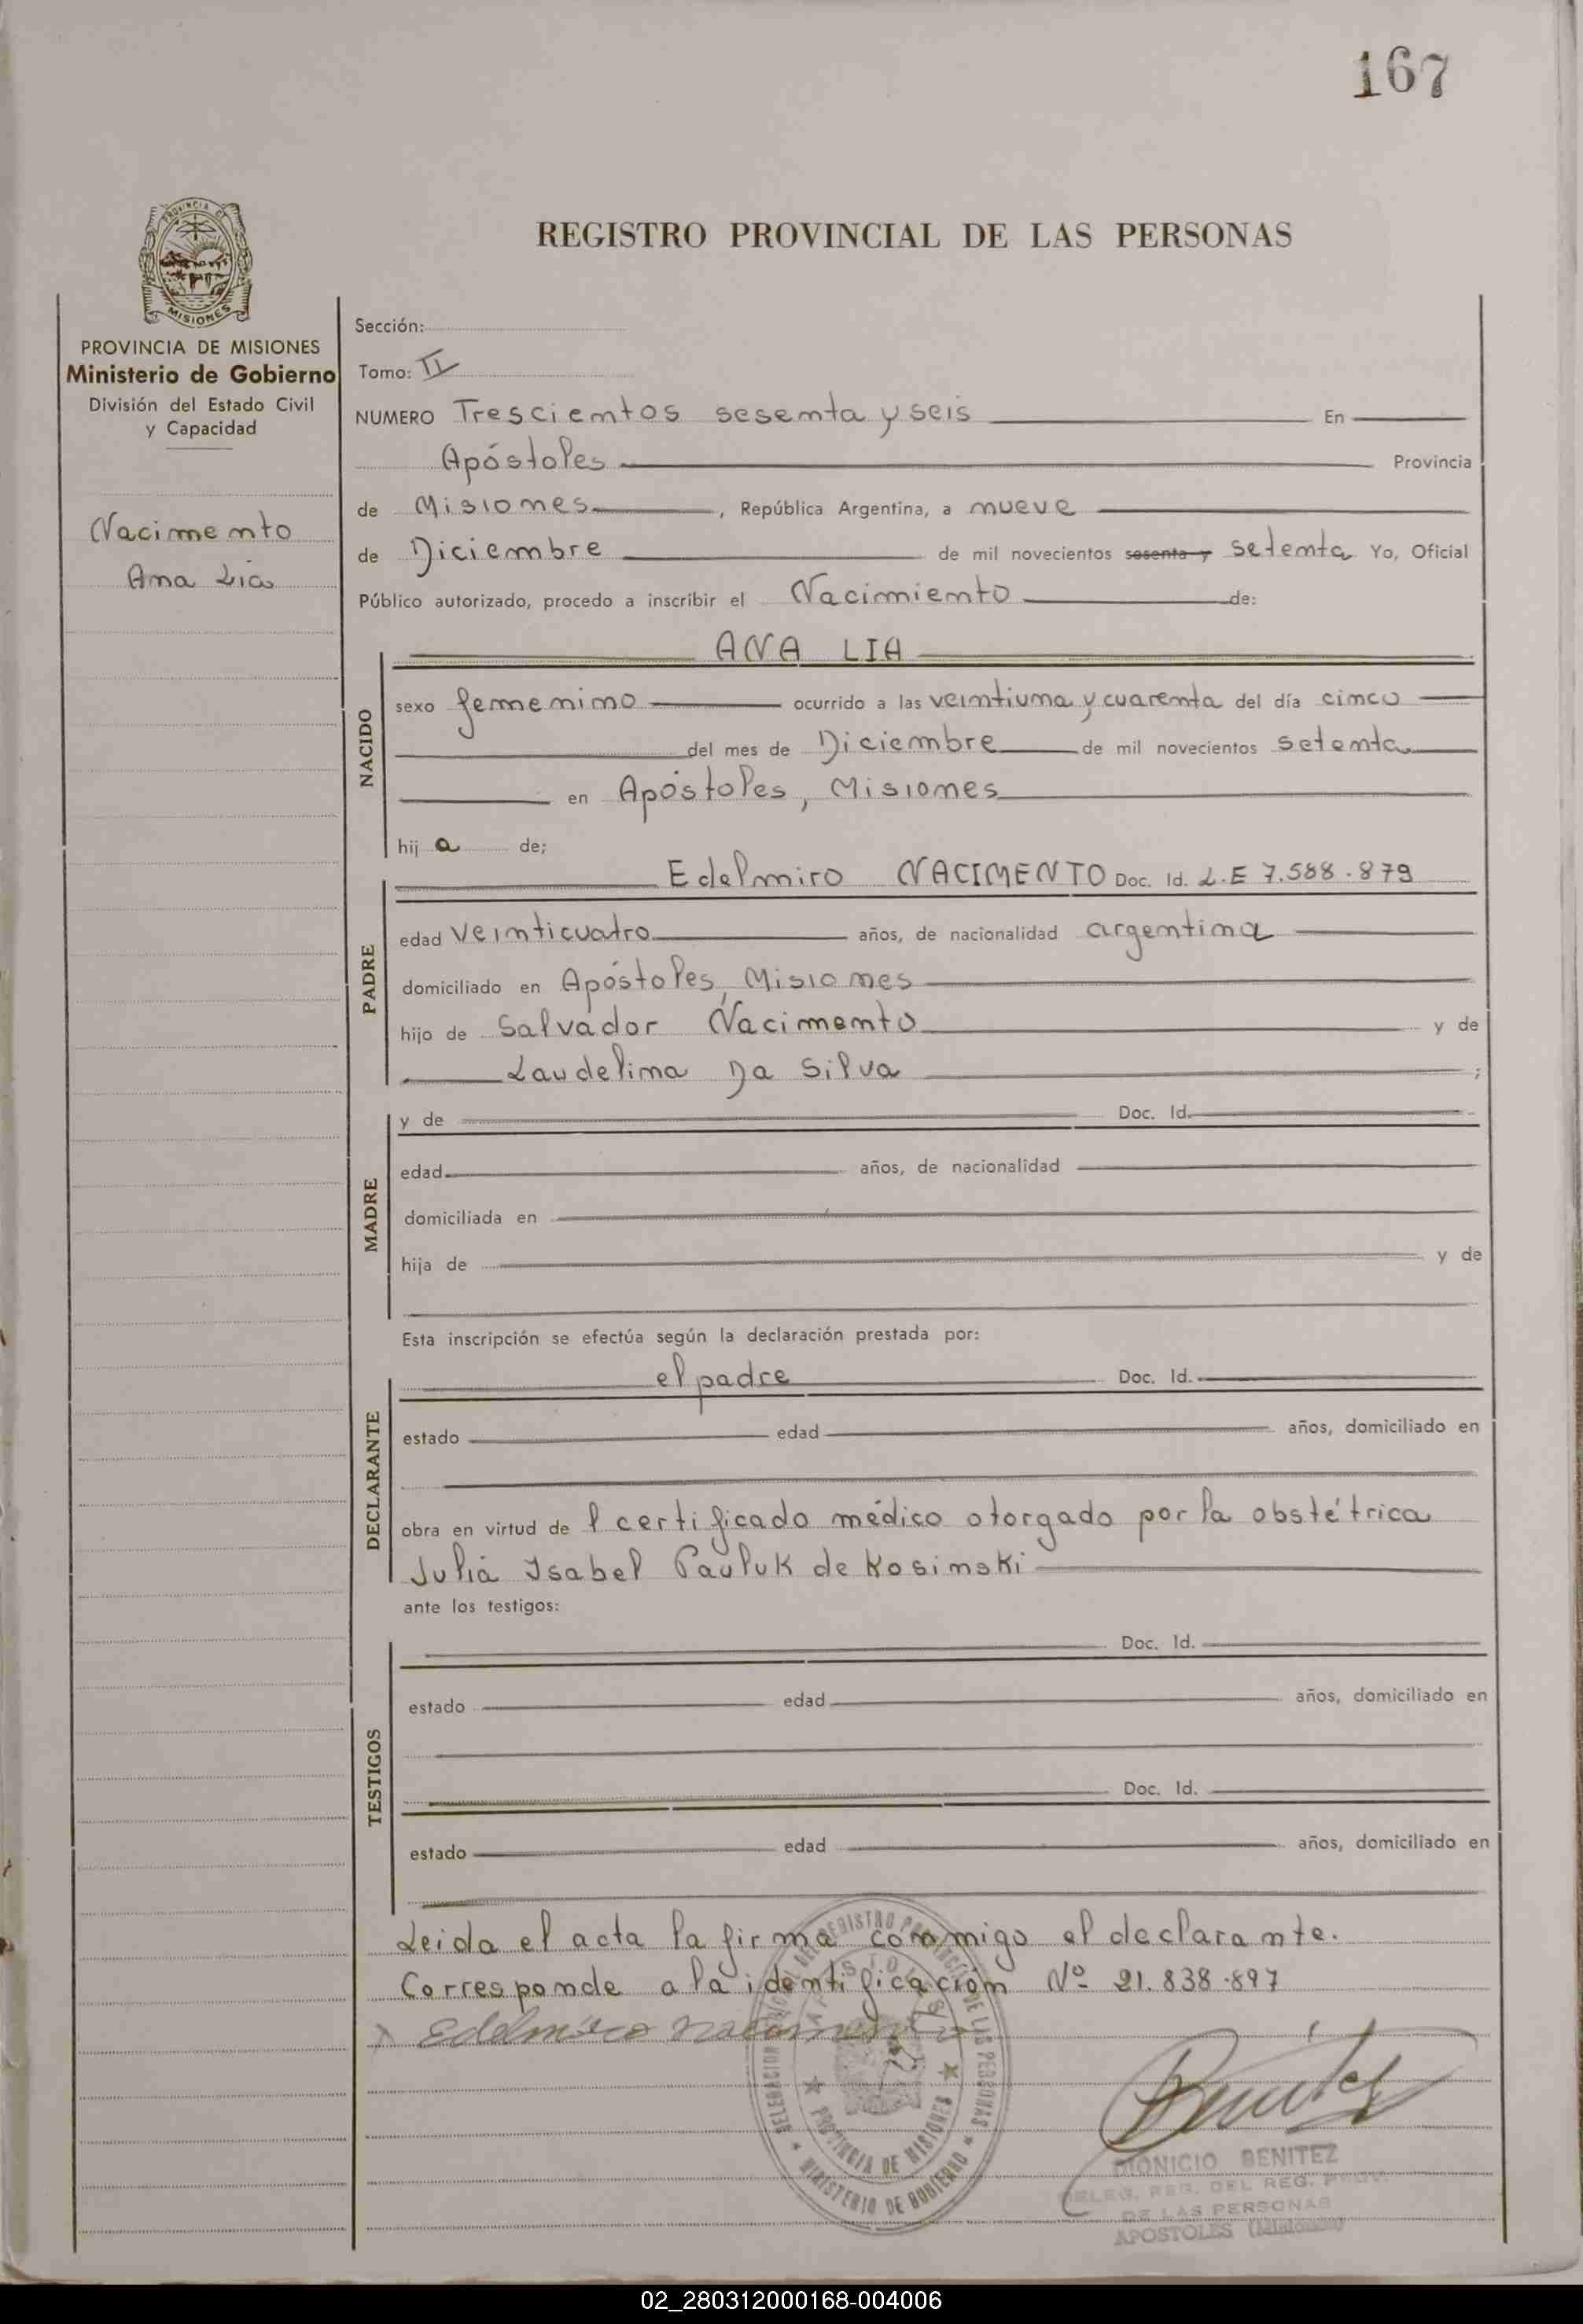 167
PROVINCIA DE
MISIONES
REGISTRO PROVINCIAL DE LAS PERSONAS
PROVINCIA DE MISIONES
Ministerio de Gobierno
División del Estado Civil
y Capacidad
Nacimento
Ana Lia
Sección:
Tomo: II
NUMERO Trescientos sesenta y seis En
Apóstoles Provincia
de Misiones, República Argentina, a nueve
de Diciembre de mil novecientos sesenta y setenta Yo, Oficial
Público autorizado, procedo a inscribir el Nacimiento de:
NACIDO
ANA LIA
sexo femenino ocurrido a las veintiuna y cuarenta del día cinco
del mes de Diciembre de mil novecientos setenta
en Apóstoles, Misiones
hij a de;
PADRE
Edelmiro NACIMENTO Doc. Id. L.E 7.588.879
edad veinticuatro años, de nacionalidad argentina
domiciliado en Apóstoles, Misiones
hijo de Salvador Nacimento y de
Laudelina Da Silva ;
MADRE
y de Doc. Id.
edad años, de nacionalidad
domiciliada en
hija de y de
Esta inscripción se efectúa según la declaración prestada por:
DECLARANTE
el padre Doc. Id.
estado edad años, domiciliado en
obra en virtud de l certificado médico otorgado por la obstétrica
Julia Isabel Pauluk de Kosinski
ante los testigos:
TESTIGOS
Doc. Id.
estado edad años, domiciliado en
Doc. Id.
estado edad años, domiciliado en
Leida el acta la firma conmigo el declarante.
Corresponde a la identificación Nº 21.838.897
Edelmiro Nacimento
DELEGACION DEL REGISTRO PROVINCIAL DE LAS PERSONAS
APOSTOLES
PROVINCIA DE MISIONES
MINISTERIO DE GOBIERNO
Benitez
DIONICIO BENITEZ
DELEG. REG. DEL REG. PROV.
DE LAS PERSONAS
APOSTOLES (Misiones)
02_280312000168-004006